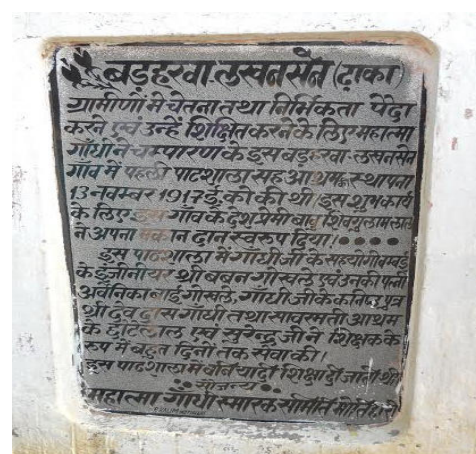 बड़हरवा लखनसेन (ढ़ाका)
ग्रामीणों में चेतना तथा निर्भिकता पैदा
करने एवं उन्हें शिक्षित करने के लिए महात्मा
गाँधी ने चम्पारण के इस बड़हरवा-लखनसेन
गाँव में पहली पाठशाला सह आश्रम स्थापना
13 नवम्बर 1917 ई. को की थी। इस शुभ कार्य
के लिए इस गाँव के देशप्रेमी बाबु शिवगुलाम लाल
ने अपना मकान दान स्वरुप दिया।
इस पाठशाला में गाँधीजी के सहयोगी बम्बई
के इंजीनीयर श्री बबन गोखले एवं उनकी पत्नी
अवंनिकाबाई गोखले, गाँधी जी के कनिष्ठ पुत्र
श्री देवदास गाँधी तथा साबरमती आश्रम
के छोटेलाल एवं सुरेन्द्र जी ने शिक्षक के
रुप में बहुत दिनों तक सेवा की।
इस पाठशाला में शिक्षा दी जाती थी
सौजन्य
महात्मा गाँधी स्मारक समिति मोतिहारी